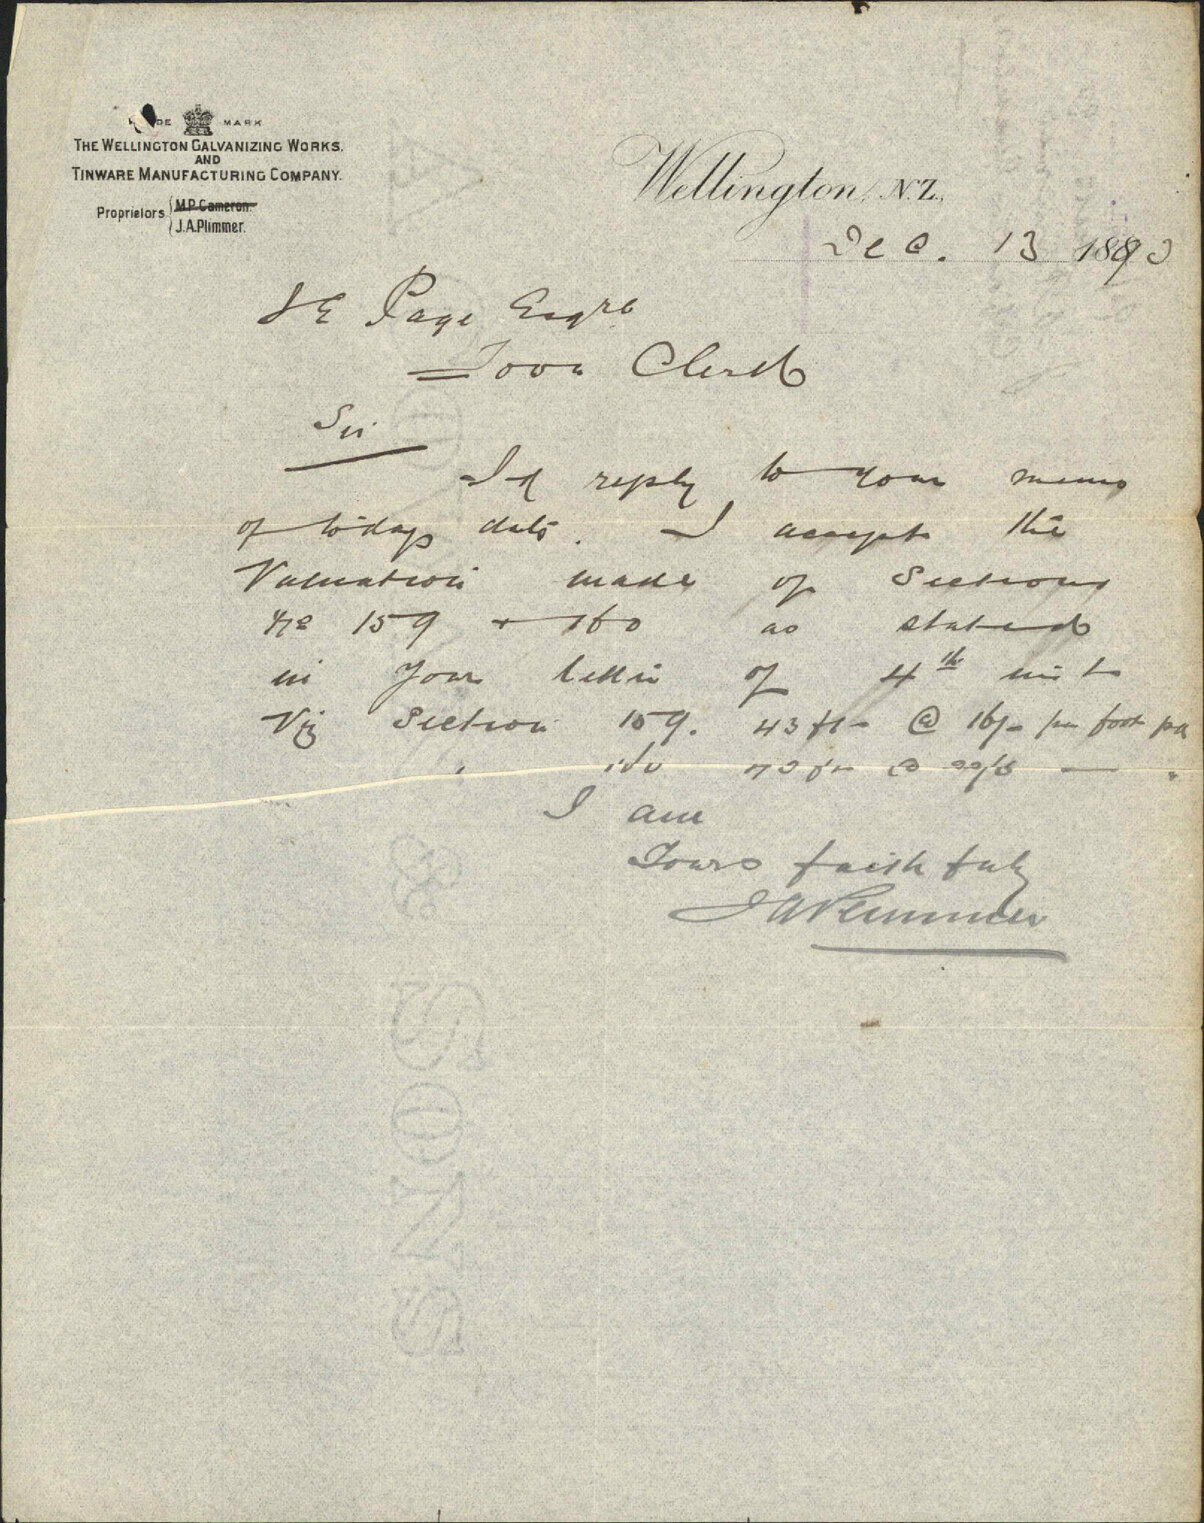 TRADE MARK
THE WELLINGTON GALVANIZING WORKS.
AND
TINWARE MANUFACTURING COMPANY.
Proprietors M.P. Cameron.
J.A. Plimmer.
Wellington, N.Z.,
Dec. 13 1890
J E Page Esqre
Town Clerk
Sir
In reply to your memo
of todays date. I accept the
Valuation made of Sections
No 159 + 160 as stated
in your letter of 4th inst
Viz Section 159. 43 ft @ 16/- per foot pa
" 160
I am
Yours faithfuly
J A Plimmer
& SONS